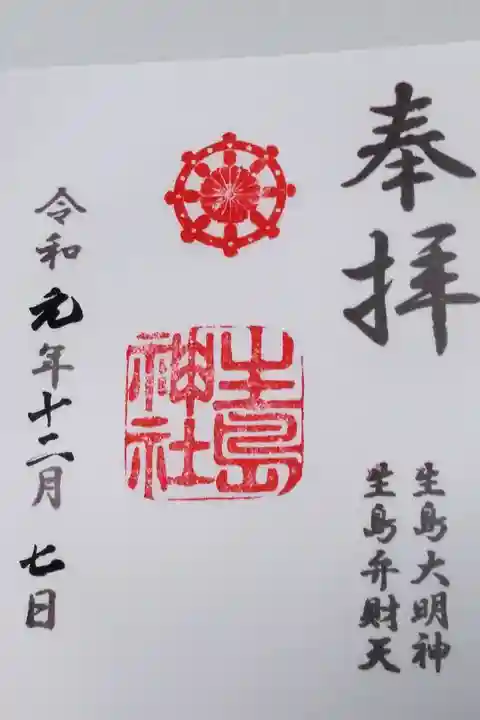 奉拝
生島大明神
生島弁財天
生島
神社
令和元年十二月七日